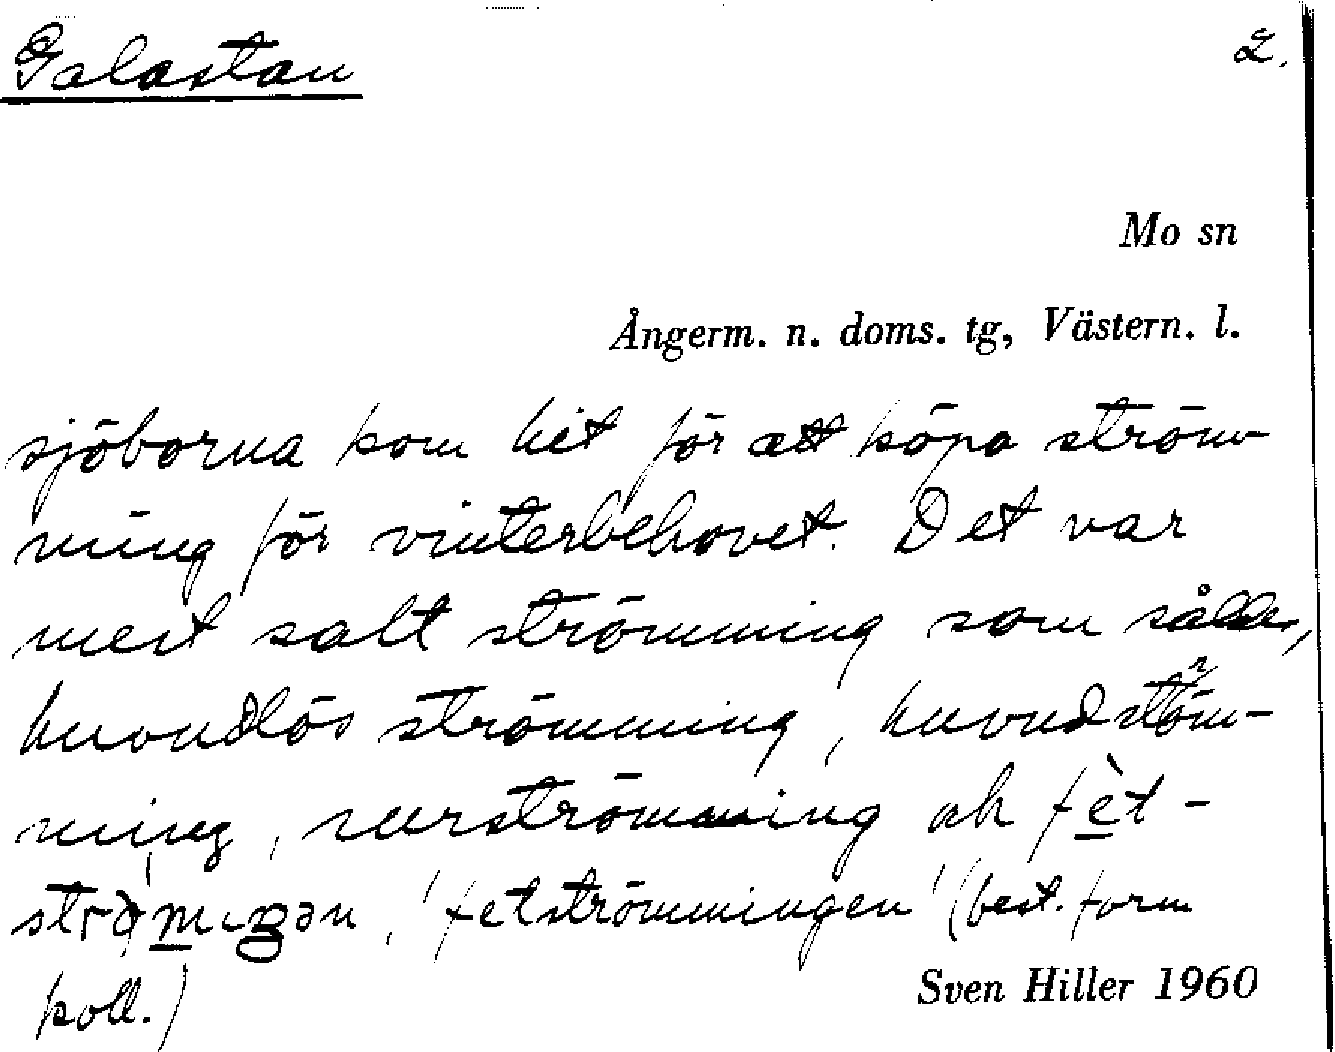 Galastan 2.
Mo sn
Ångerm. n. doms. tg, Västern. l.
sjöborna kom hit för att köpa ström-
ming för vinterbehovet. Det var
mest salt strömming som såldes,
huvudlös strömming, huvudström-
ming, surströmming och fèt-
'fetströmmingen' (best. form
koll.)
Sven Hiller 1960